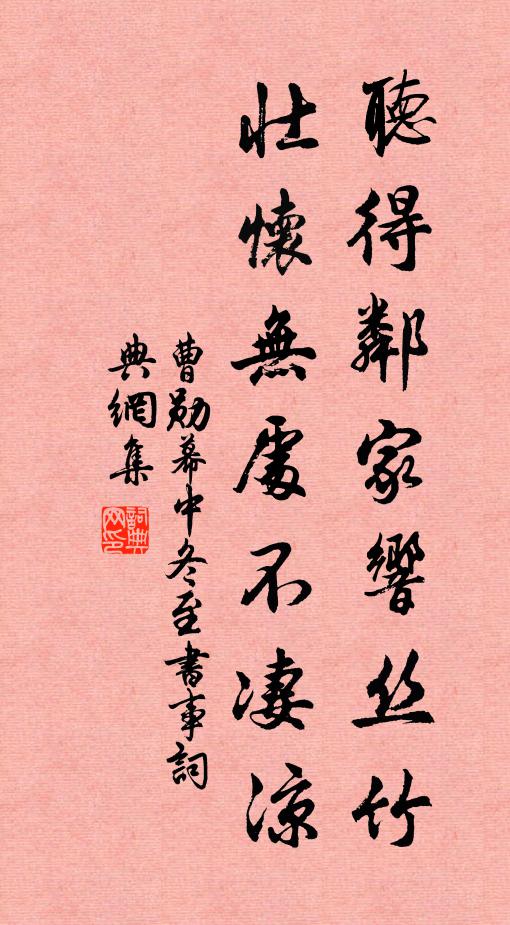 聽得鄰家響丝竹
壯懷無處不凄涼
曹勛幕中冬至書事詞
典網集
詞典
网印